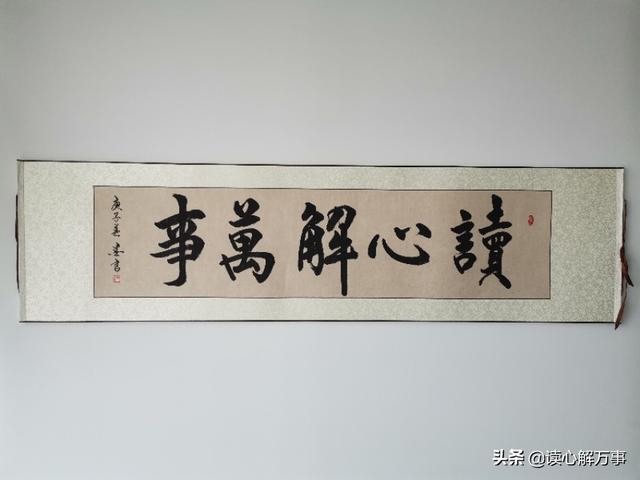 讀心解萬事
庚子美堂書
头条 @读心解万事